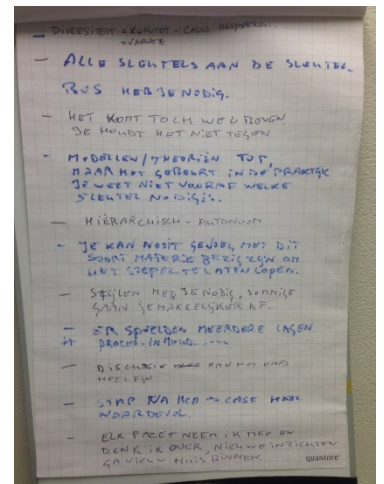 - DIVERSITEIT = KWALITEIT - CASUS BESPREKEN.
= VARIATIE
- ALLE SLEUTELS AAN DE SLEUTEL-
BOS HEB JE NODIG.
- HET KOMT TOCH WEL BOVEN
JE HOUDT HET NIET TEGEN
- MODELLEN/THEORIËN TOF,
MAAR HET GEBEURT IN DE PRAKTIJK
JE WEET NIET VOORAF WELKE
SLEUTEL NODIG IS.
- HIËRARCHISCH - AUTONOOM
- JE KAN NOOIT GENOEG MET DIT
SOORT MATERIE BEZIG ZIJN OM
HET SOEPEL TE LATEN LOPEN.
- STIJLEN HEB JE NODIG, SOMMIGE
GAAN GEMAKKELIJKER AF.
- ER SPEELDEN MEERDERE LAGEN
PROCES-INHOUD ....
- DISCUSSIE AAN HET EIND
HEEL FIJN
- STAP NA → CASE HEEL
WAARDEVOL.
- ELK NEEM IK MEE EN
DENK IK OVER, NIEUWE INZICHTEN
BINNEN.
quantore